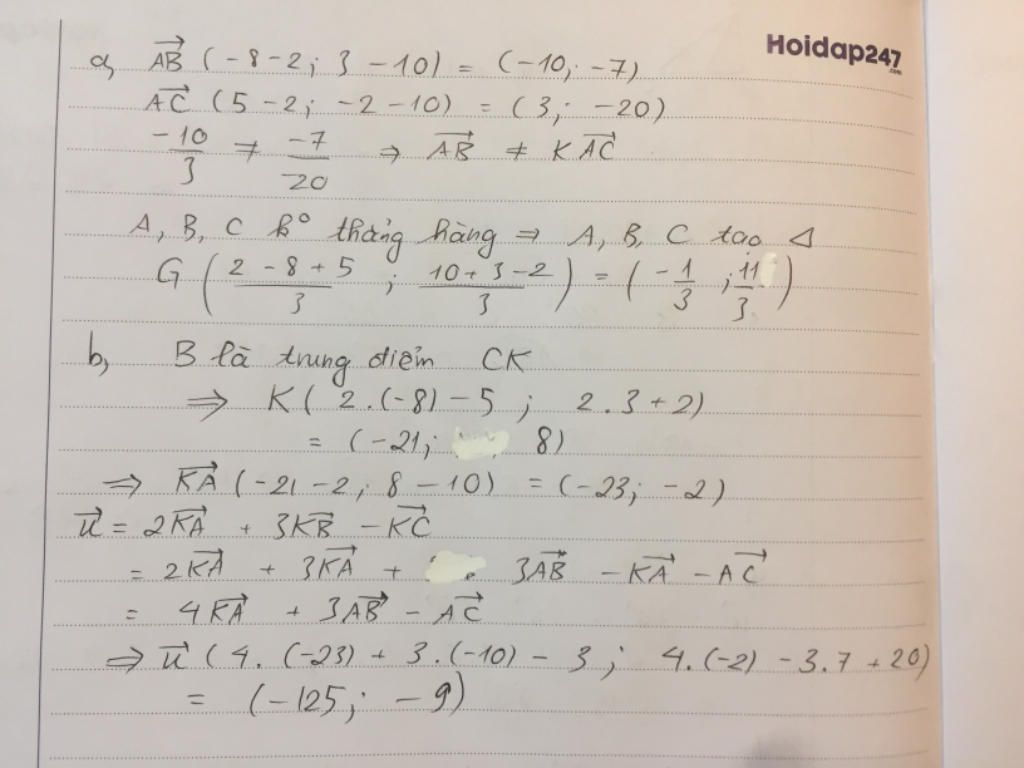 Hoidap247
.com
a, AB→ (-8-2; 3-10) = (-10; -7)
AC→ (5-2; -2-10) = (3; -20)
-10/3 ≠ -7/20 ⇒ AB→ ≠ KAC→
A, B, C k° thẳng hàng ⇒ A, B, C tạo Δ
G ( (2-8+5)/3 ; (10+3-2)/3 ) = ( -1/3 ; 11/3 )
b, B là trung điểm CK
⇒ K( 2.(-8)-5 ; 2.3+2)
= (-21; 8)
⇒ KA→ (-21-2; 8-10) = (-23; -2)
u→ = 2KA→ + 3KB→ - KC→
= 2KA→ + 3KA→ + 3AB→ - KA→ - AC→
= 4KA→ + 3AB→ - AC→
⇒ u→ (4.(-23) + 3.(-10) - 3; 4.(-2) - 3.7 + 20)
= (-125; -9)